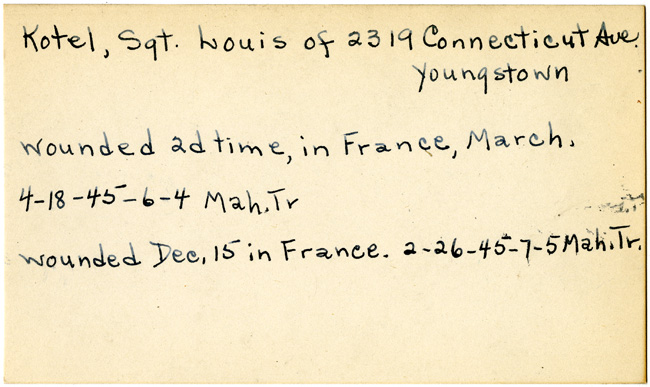 Kotel, Sgt. Louis of 2319 Connecticut Ave.
Youngstown
wounded 2d time, in France, March.
4-18-45-6-4 Mah.Tr
wounded Dec. 15 in France. 2-26-45-7-5 Mah.Tr.